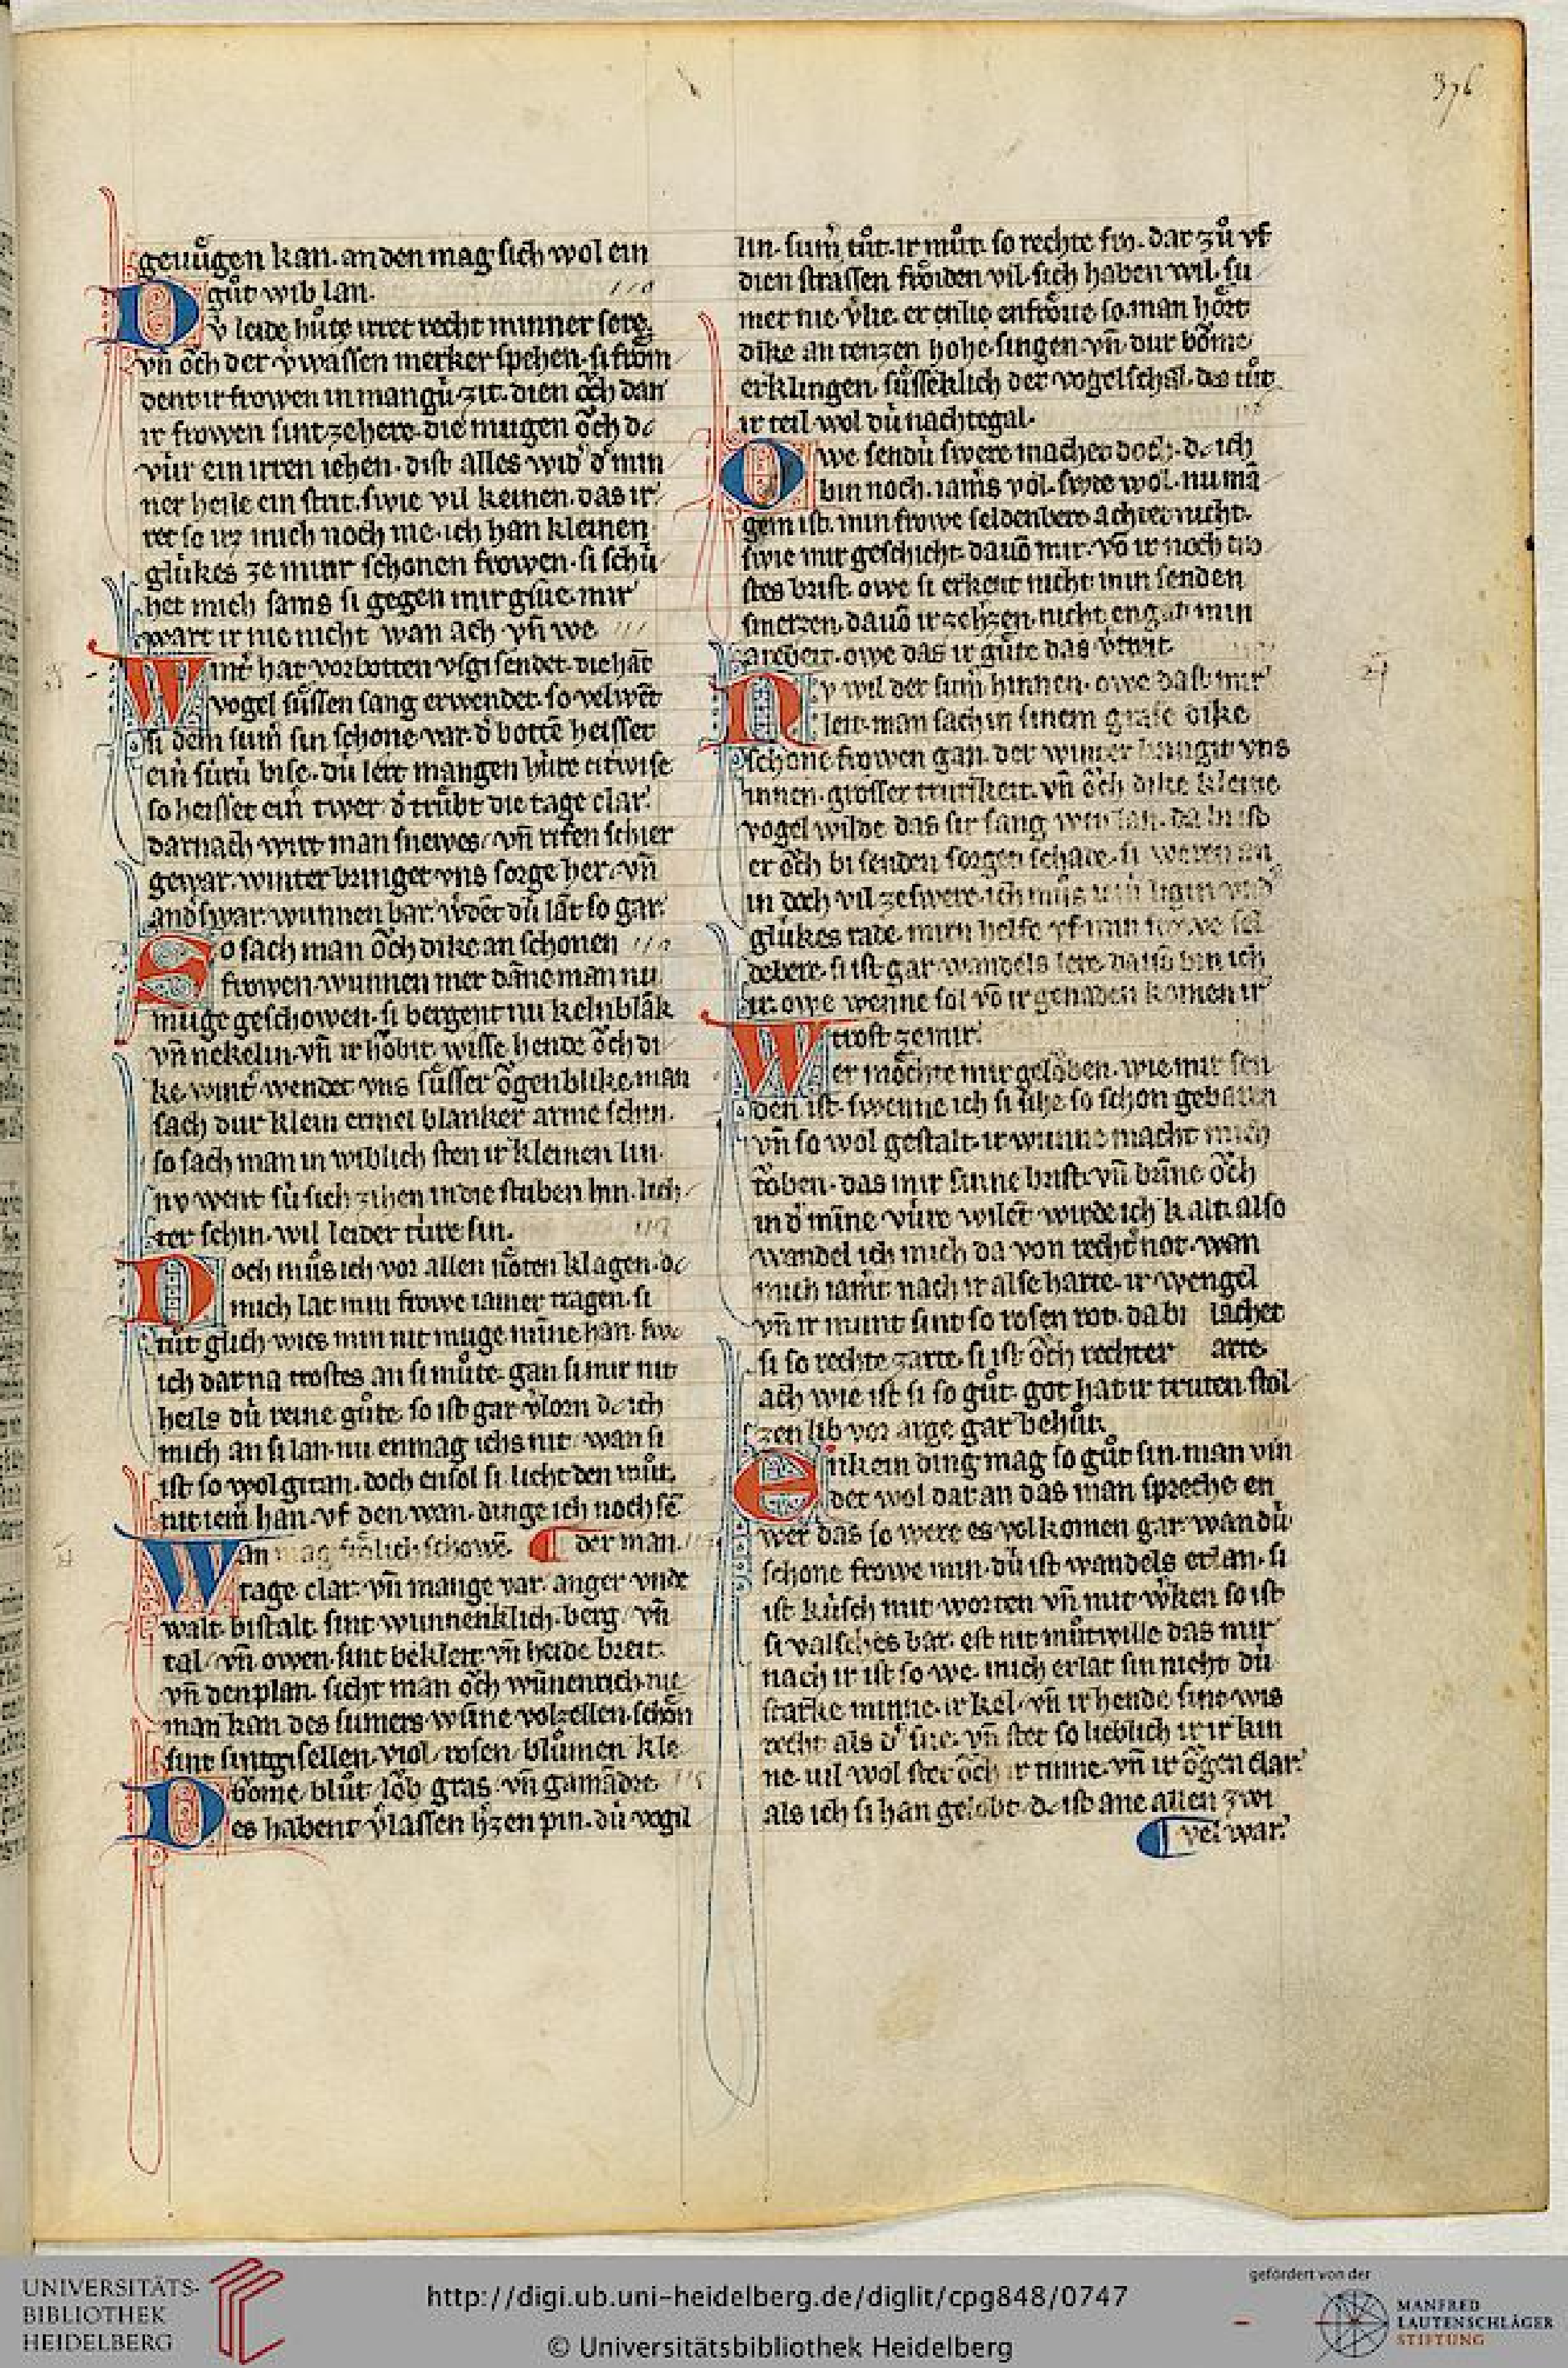 376
genuͦgen kan. an den mag sich wol ein
guͦt wib lan.
Dv leide huͦte irret recht minner sere.
vn̄ oͮch der v̓wassen merker spehen. si froͤm
dent ir frowen in mangu̓ zit. dien oͮch dan
ir frowen sint zehere. die mugen oͮch dc
vu̓r ein irren iehen. dist alles wid̓ d̓ min
ner heile ein strit. swie vil keinen. das ir
ret so irz mich noch me. ich han kleinen
glu̓kes ze minr schonen frowen. si schu̓
het mich sams si gegen mir glu̓e. mir
wart ir nie nicht wan ach vn̄ we
Wint̓ hat vorbotten vsgisendet. die hāt
vogel suͤssen sang erwendet. so velwēt
si dem sum̓ sin schone var. d̓ bottē heisset
ein su̓ru̓ bise. du̓ lert mangen bitte
so heisset ein twer d̓ truͤbt die tage clar.
darnach wirt man snewes vn̄ rifen schier
gewar. winter bringet vns sorge her. vn̄
and̓swar. wunnen bar. w̓dēt du̓ lāt so gar.
So sach man oͮch dike an schonen
frowen wunnen mer dāne man nu
muge geschowen. si bergent nu kelnblāk
vn̄ nekelin. vn̄ ir hoͮbit. wisse hende oͮch di
ke. wint̓ wendet vns suͤsser oͮgenblike. man
sach dur klein ermel blanker arme schin.
so sach man in wiblich sten ir kleinen lin.
nv went su̓ sich zihen in die stuben hin. lich
ter schin. wil leider tu̓re sin.
Doch muͦs ich vor allen noͤten klagen. dc
mich lat min frowe iamer tragen. si
tuͦt glich wies min nit muge mīne han. swc
ich darna trostes an si muͦte. gan si mir nit
heils du̓ reine guͦte. so ist gar v̓lorn dc ich
mich an si lan. nu enmag ichs nit. wan si
ist so wol gitan. doch ensol si licht den muͦt.
nit iem̓ han. vf den wan. dinge ich noch sē
Wan mag froͤlich schowē. der man.
tage clar. vn̄ mange var. anger vnde
walt. bistalt. sint wunnenklich. berg vn̄
tal vn̄ owen. sint bekleit. vn̄ heide breit.
vn̄ den plan. sicht man oͮch wūnenrich. nie
man kan des sumers wūne volzellen. schon
sint sin gisellen. viol rosen bluͦmen kle
boͮme bluͦt loͮb gras vn̄ gamādre
Des habent v̓lassen h̓zen pin. du̓ vogil
lin. sum̓ tuͦt. ir muͦt. so rechte fro. dar zuͦ vf
dien strassen froͤiden vil. sich haben wil. su
mer nie v̓lie. er enlie enfroͤite so. man hoͤrt
dike an tenzen hohe singen. vn̄ dur boͮme
erklingen. suͤsseklich der vogel schal. des tuͦt
ir teil wol du̓ nachtegal.
Owe sendu̓ swere machet doch. dc ich
bin noch. iam̓s vol. swie wol. nu mā
gem ist. min frowe seldenbere achtet nicht.
swie mir geschicht. dauō mir. vō ir noch
stes brist. owe si erkent nicht min senden
smerzen. dauō ir ze h̓zen. nicht engat min
arebeit. owe das ir guͤte das v̓treit
Nv wil der sum̓ hinnen. owe dast mir
leit. man sach in sinem grase dike
schone frowen gan. der winter bringit vns
innen. grosser trurikeit. vn̄ oͮch dike kleine
vogel wilde das sir sang
er oͮch bi senden sorgen schade. si weren an
in doch vil ze swere. ich muͦs
glu̓kes rade. mirn helfe vf min frowe sel
debere. si ist gar wandels lere. dauō bin ich
ir. owe wenne sol vō ir genaden komen ir
trost ze mir.
Wer moͤchte mir geloͮben. wie mir sen
den ist. swenne ich si sihe so schon gebarn
vn̄ so wol gestalt. ir wunne macht mich
toͮben. das mir sinne brist. vn̄ brīne oͮch
in d̓ mīne vu̓re wilēt wirde ich kalt. also
wandel ich mich da von recht̓ not. wan
mich iam̓t nach ir alse harte. ir wengel
vn̄ ir munt sint so rosen rot. da bi lachet
si so rechte zarte. si ist oͮch rechter arte.
ach wie ist si so guͦt. got hat ir truten. stol
zen lib vor arge gar behuͦt.
Enkein ding mag so guͦt sin. man vin
det wol daran das man spreche en
wer das so were es volkomen gar. wan du̓
schone frowe min. du̓ ist wandels erlan. si
ist ku̓sch mit worten vn̄ mit w̓ken so ist
si valsches bar. est nit muͦtwille das mir
nach ir ist so we. mich erlat sin nicht du̓
starke minne. ir kel. vn̄ ir hende sint wis
recht als d̓ sne. vn̄ stet so lieblich ir ir kin
ne. vil wol stet oͮch ir tinne. vn̄ ir oͮgen clar.
als ich si han gelobt. dc ist ane allen zwi
vel war.
UNIVERSITÄTS-
BIBLIOTHEK
HEIDELBERG
http://digi.ub.uni-heidelberg.de/diglit/cpg848/0747
© Universitätsbibliothek Heidelberg
gefördert von der
MANFRED
LAUTENSCHLÄGER
STIFTUNG